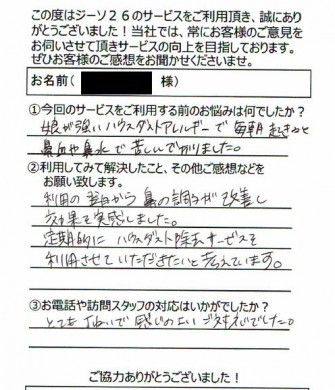 この度はジーソ２６のサービスをご利用頂き、誠にあり
がとうございました！当社では、常にお客様のご意見を
お伺いさせて頂きサービスの向上を目指しております。
ぜひお客様のご感想をお聞かせくださいませ。
お名前( 様)
①今回のサービスをご利用する前のお悩みは何でしたか？
娘が強いハウスダストアレルギーで毎朝起きると
鼻血や鼻水で苦しんでおりました。
②利用してみて解決したこと、その他ご感想などを
お願い致します。
利用の翌日から鼻の調子が改善し
効果を実感しました。
定期的にハウスダスト除去サービスを
利用させていただきたいと考えています。
③お電話や訪問スタッフの対応はいかがでしたか？
とても丁ねいで感じのよいご対応でした。
ご協力ありがとうございました！